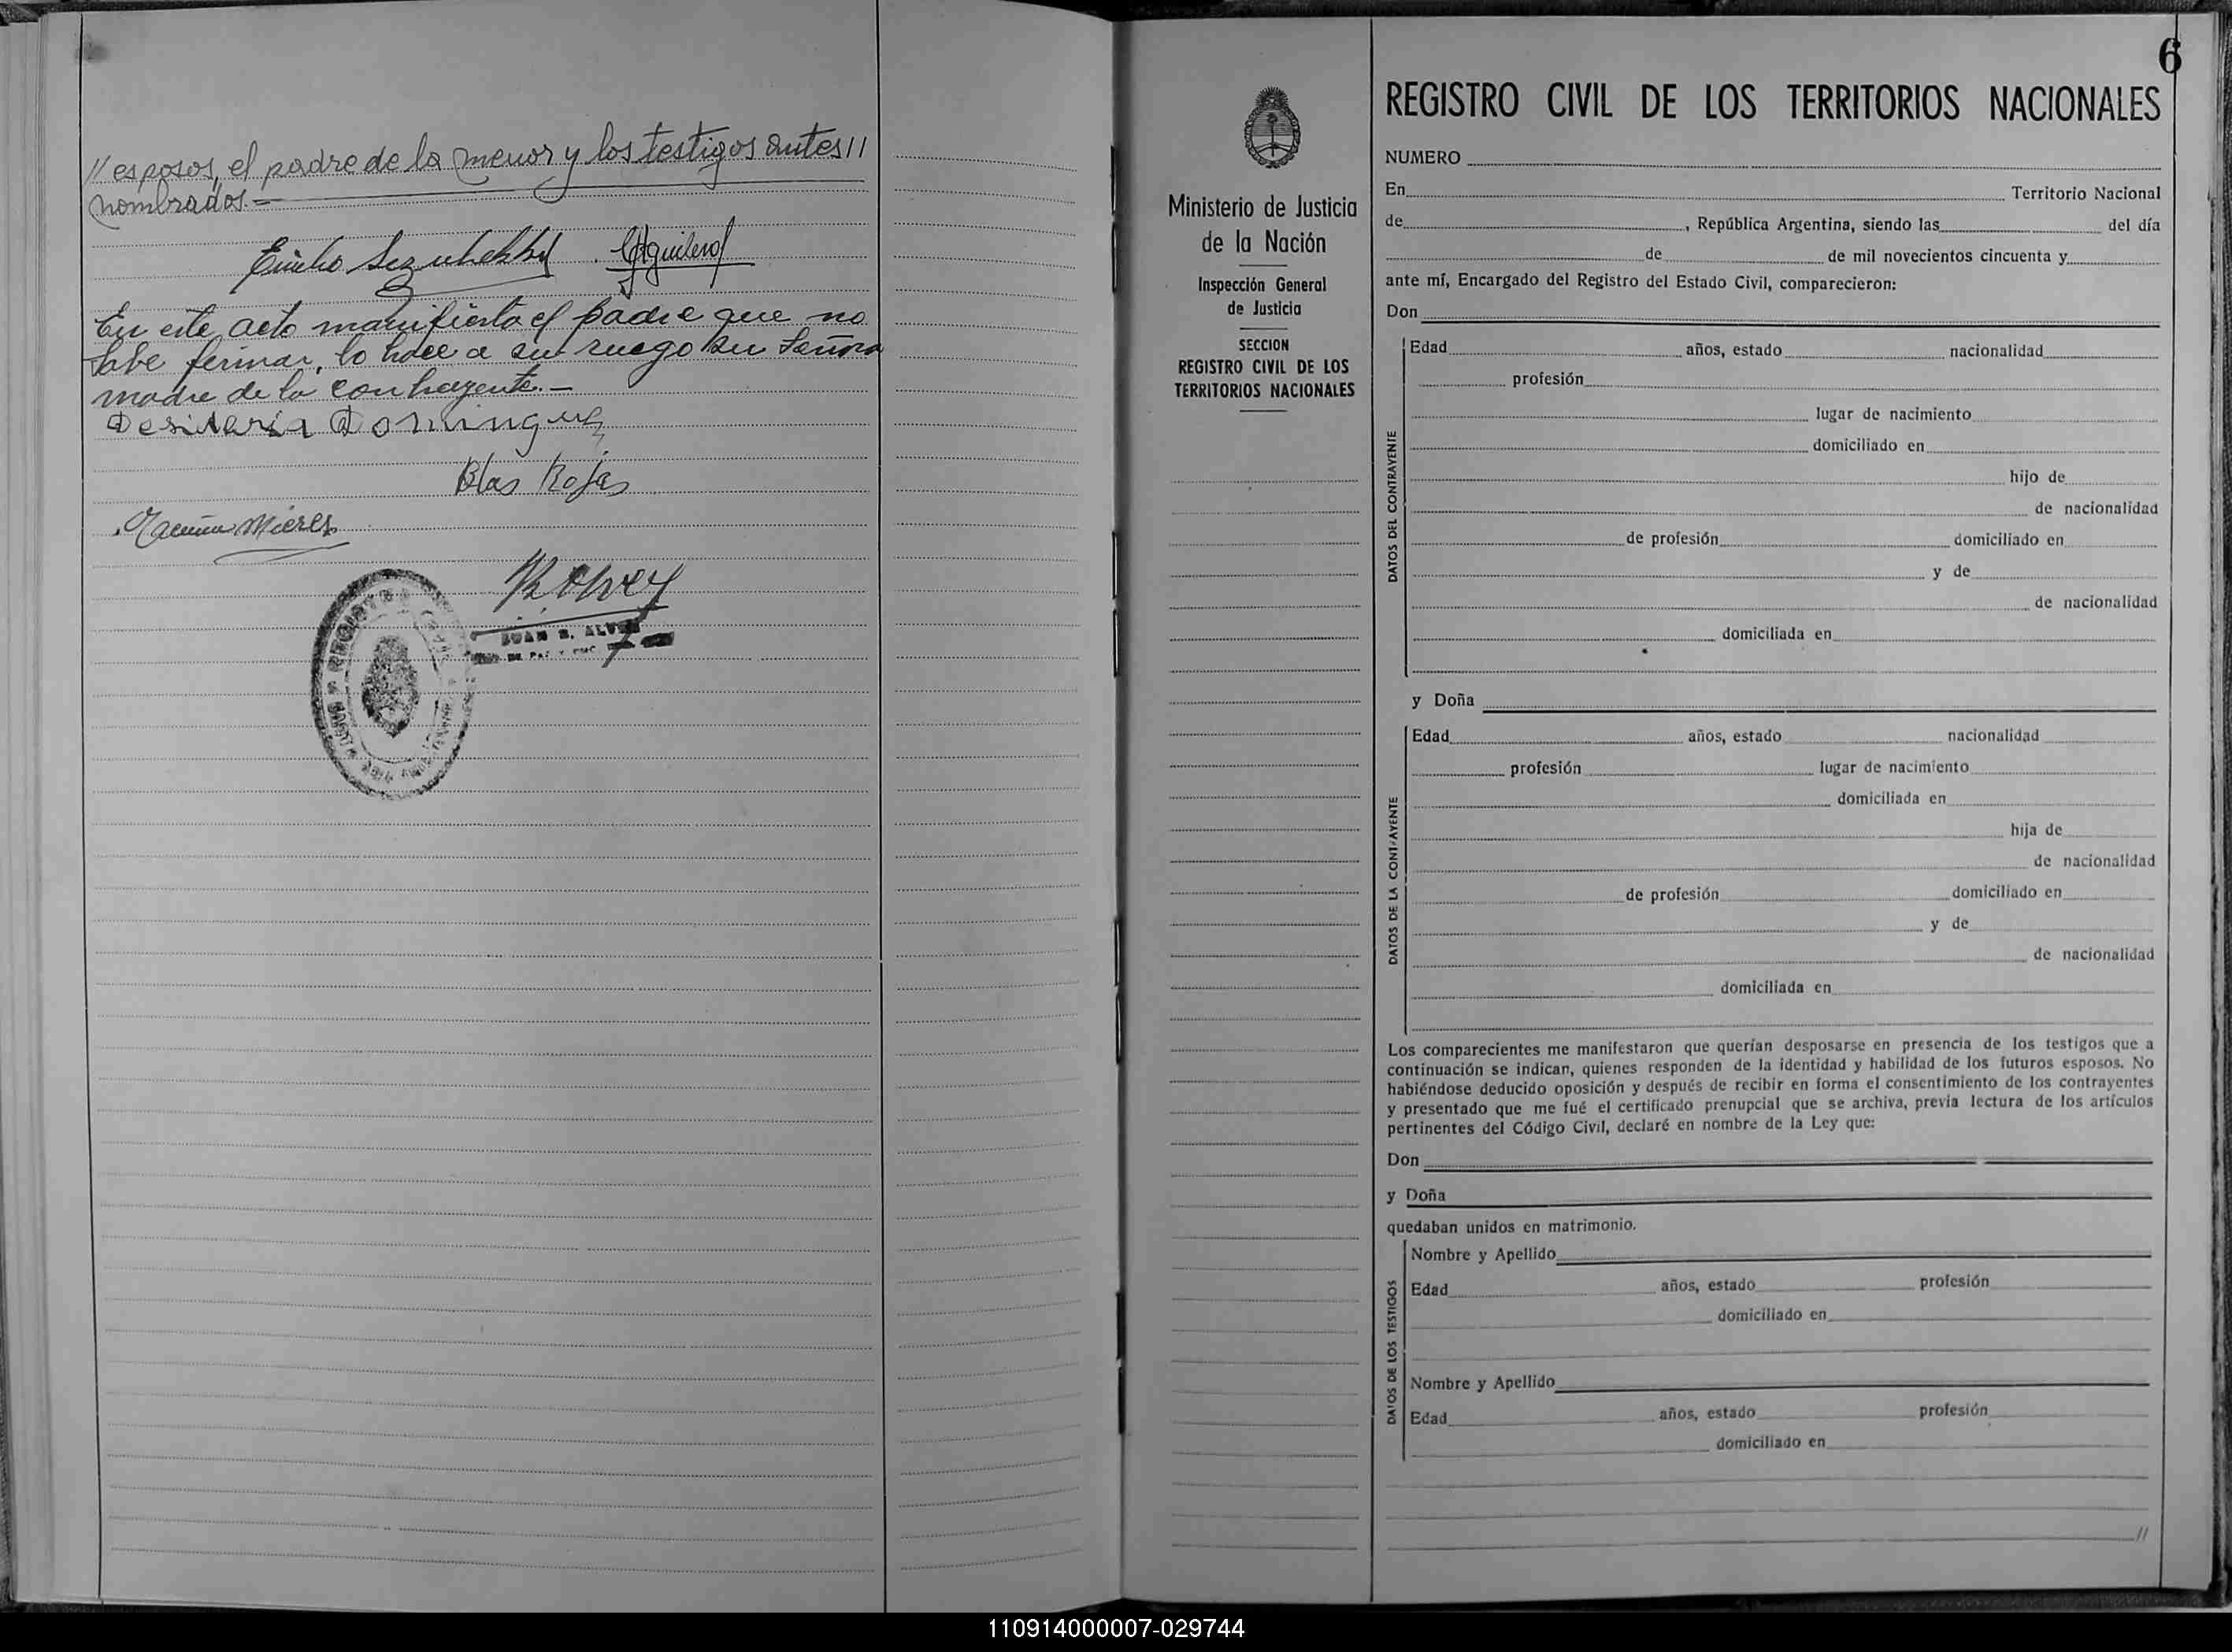 // esposos, el padre de la menor y los testigos antes //
nombrados.—
Emilio
G. Aguilera
En este acto manifiesta el padre que no
sabe firmar, lo hace a su ruego su Señora
madre de la contrayente.—
Desideria Dominguez
Blas Rojas
Mieres
JUAN R. ALVEZ
DE PAZ Y ENC.
REGISTRO
6
Ministerio de Justicia
de la Nación
Inspección General
de Justicia
SECCION
REGISTRO CIVIL DE LOS
TERRITORIOS NACIONALES
REGISTRO CIVIL DE LOS TERRITORIOS NACIONALES
NUMERO
En Territorio Nacional
de , República Argentina, siendo las del día
de de mil novecientos cincuenta y
ante mí, Encargado del Registro del Estado Civil, comparecieron:
Don
DATOS DEL CONTRAYENTE
Edad años, estado nacionalidad
profesión
lugar de nacimiento
domiciliado en
hijo de
de nacionalidad
de profesión domiciliado en
y de
de nacionalidad
domiciliada en
y Doña
DATOS DE LA CONTRAYENTE
Edad años, estado nacionalidad
profesión lugar de nacimiento
domiciliada en
hija de
de nacionalidad
de profesión domiciliado en
y de
de nacionalidad
domiciliada en
Los comparecientes me manifestaron que querían desposarse en presencia de los testigos que a
continuación se indican, quienes responden de la identidad y habilidad de los futuros esposos. No
habiéndose deducido oposición y después de recibir en forma el consentimiento de los contrayentes
y presentado que me fué el certificado prenupcial que se archiva, previa lectura de los artículos
pertinentes del Código Civil, declaré en nombre de la Ley que:
Don
y Doña
quedaban unidos en matrimonio.
DATOS DE LOS TESTIGOS
Nombre y Apellido
Edad años, estado profesión
domiciliado en
Nombre y Apellido
Edad años, estado profesión
domiciliado en
//
110914000007-029744